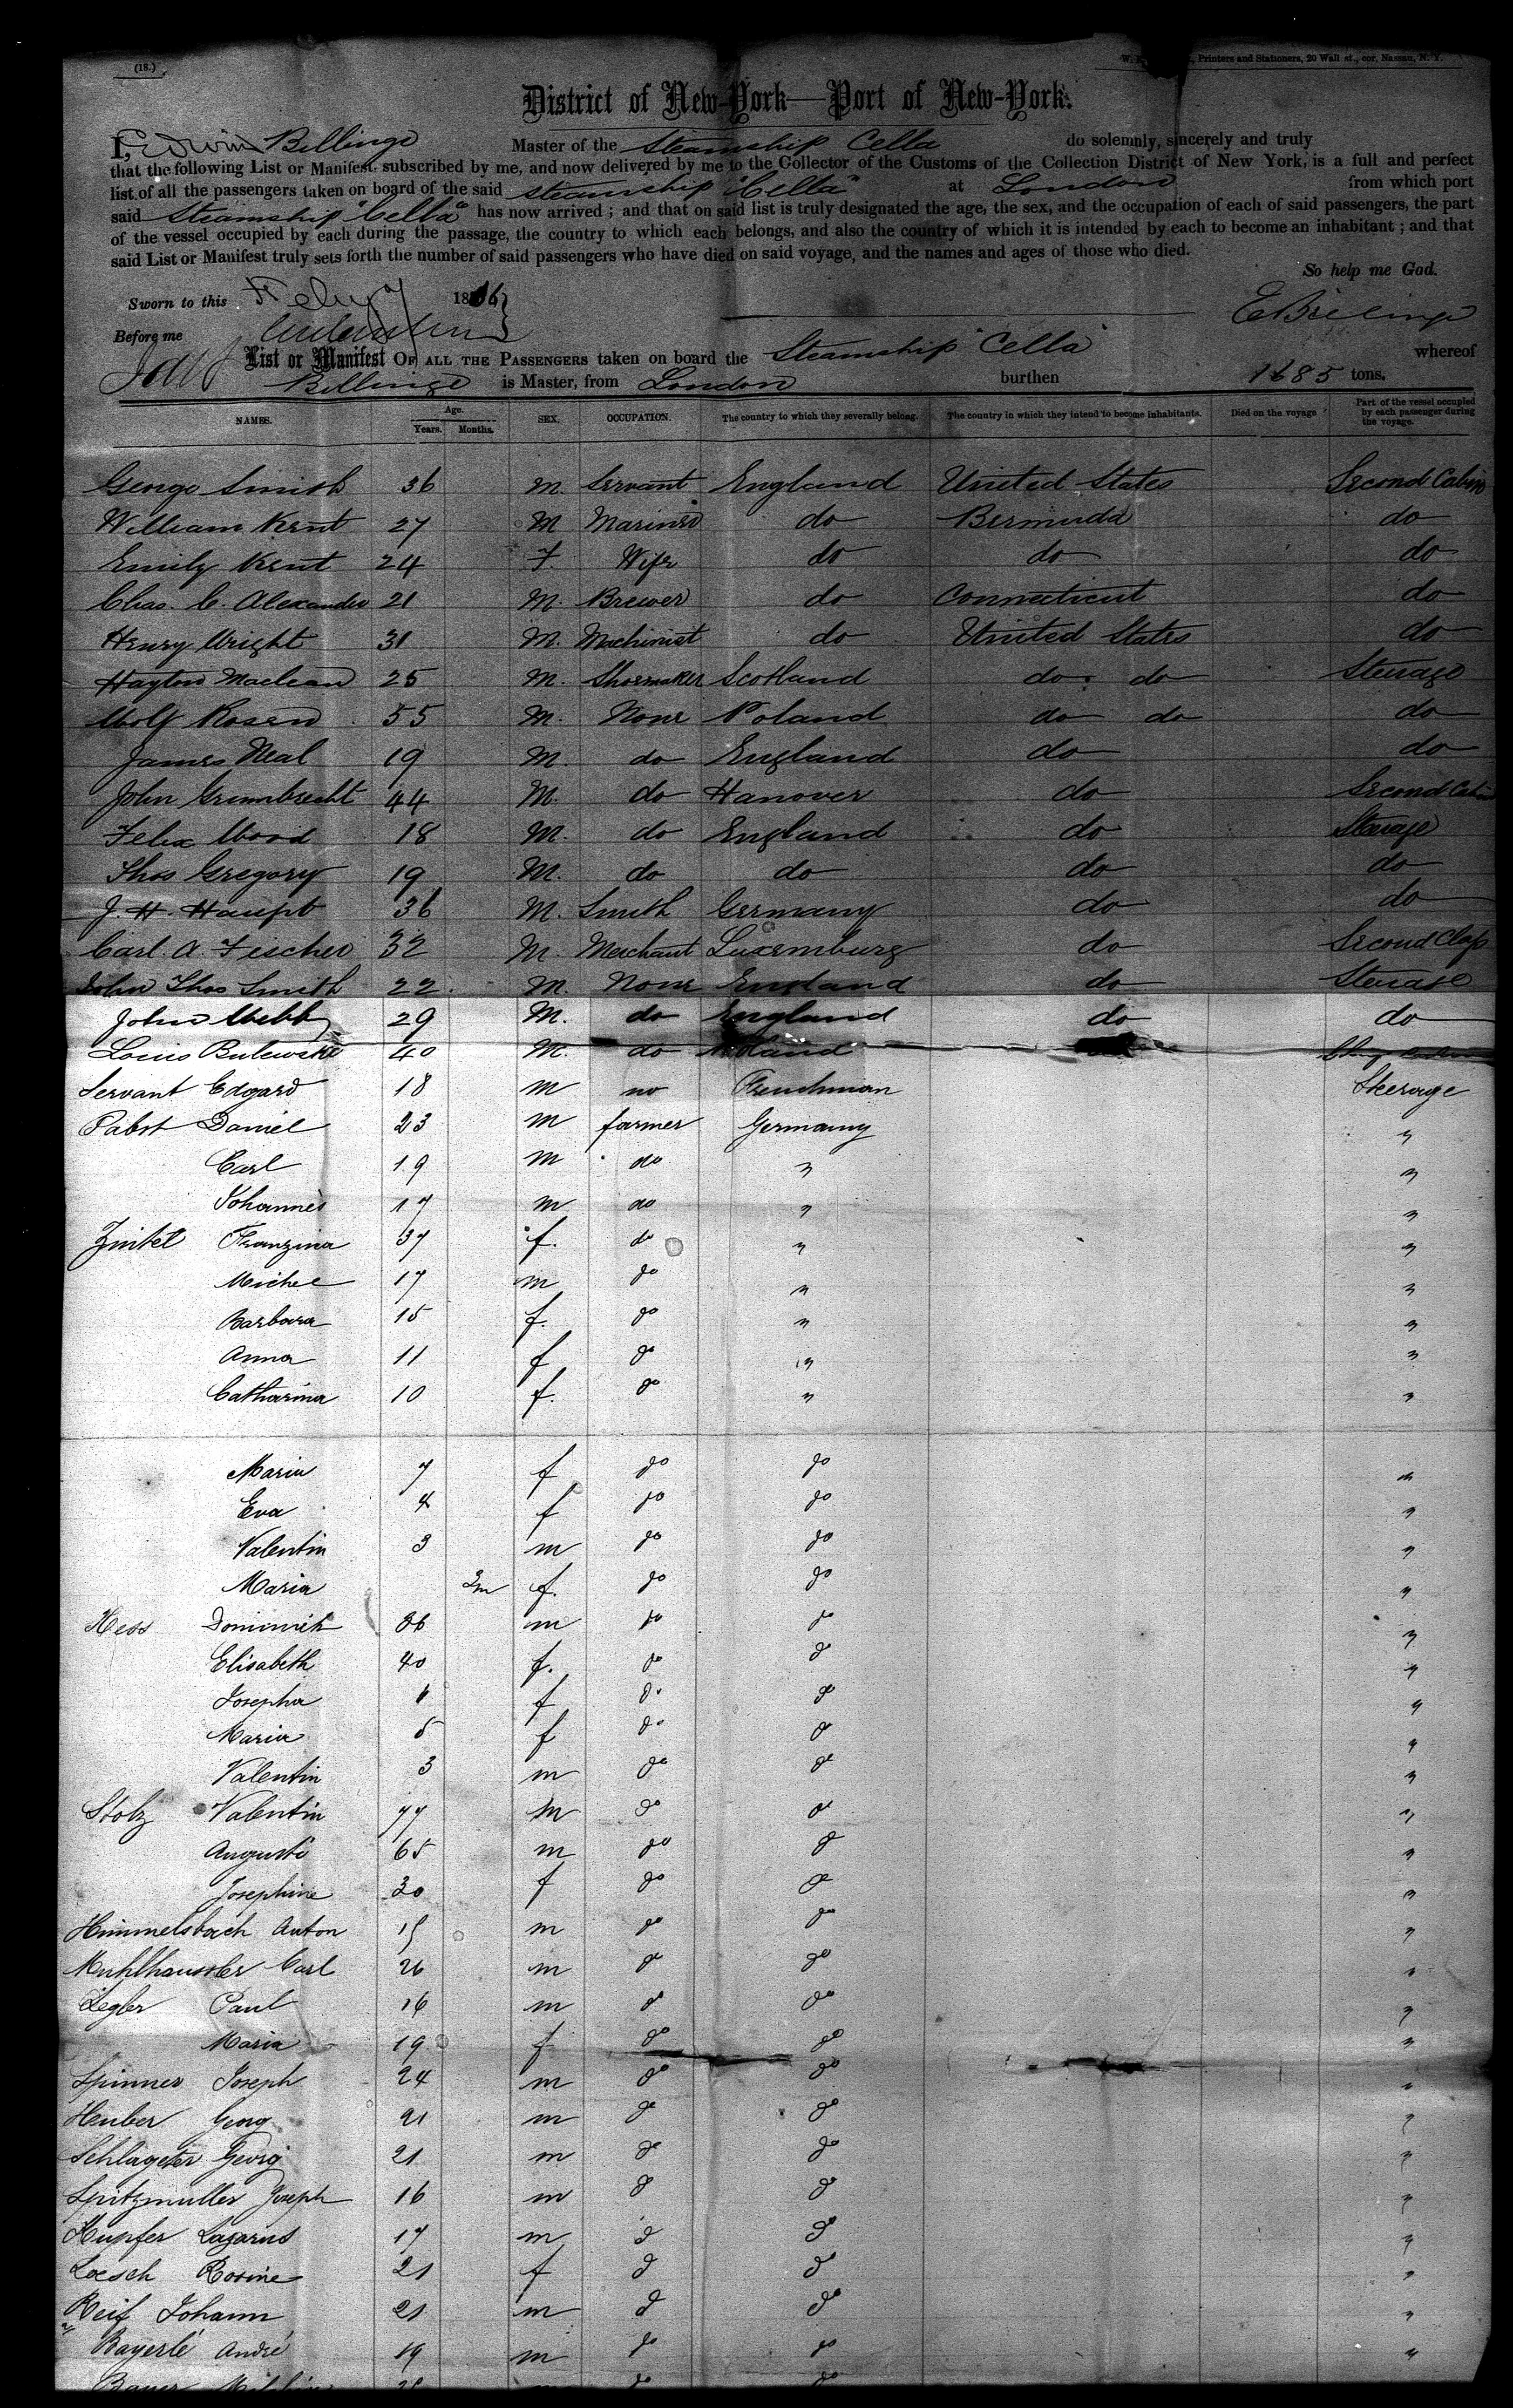 (18.)
Printers and Stationers, 20 Wall st., cor. Nassau, N. Y.
District of New-York—Port of New-York.
I, Edwin Billinge Master of the Steamship Cella do solemnly, sincerely and truly
that the following List or Manifest subscribed by me, and now delivered by me to the Collector of the Customs of the Collection District of New York, is a full and perfect
list of all the passengers taken on board of the said Steamship "Cella" at London from which port
said Steamship "Cella" has now arrived; and that on said list is truly designated the age, the sex, and the occupation of each of said passengers, the part
of the vessel occupied by each during the passage, the country to which each belongs, and also the country of which it is intended by each to become an inhabitant; and that
said List or Manifest truly sets forth the number of said passengers who have died on said voyage, and the names and ages of those who died.
So help me God.
Sworn to this Feby 7 18
E Billinge
Before me
List or Manifest OF ALL THE PASSENGERS taken on board the Steamship "Cella" whereof
Billinge is Master, from London burthen 1685 tons.
NAMES. Age. Years. Months. SEX. OCCUPATION. The country to which they severally belong. The country in which they intend to become inhabitants. Died on the voyage Part of the vessel occupied by each passenger during the voyage.
George Smith 36 M. Servant England United States Second Cabin
William Kent 27 M Mariner do Bermuda do
Emily Kent 24 F. Wife do do do
Chas. C. Alexander 21 M. Brewer do Connecticut do
Henry Wright 31 M. Machinist do United States do
Hayton Maclean 25 M. Shoemaker Scotland do do Steerage
Wolf Rosen 55 M. None Poland do do do
James Neal 19 M. do England do do
John Grumbrecht 44 M. do Hanover do Second Cabin
Felix Wood 18 M. do England do Steerage
Thos Gregory 19 M. do do do do
J. H. Haupt 36 M. Smith Germany do do
Carl. A. Fischer 32 M. Merchant Luxemburg do Second Class
John Thos Smith 22 M. None England do Steerage
John Webb 29 M. do England do do
Louis Bulewski 40 M. do Poland
Servant Edgard 18 m no Frenchman Steerage
Pabst Daniel 23 m farmer Germany "
Carl 19 m do " "
Johannes 17 m do " "
Zinbel Franzina 37 f. do " "
Michel 17 m do " "
Barbara 15 f. do " "
Anna 11 f do " "
Catharina 10 f. do " "
Maria 7 f do do "
Eva 4 f do do "
Valentin 3 m do do "
Maria 3m f. do do "
Hess Dominick 36 m do do "
Elisabeth 40 f. do do "
Josepha f do do "
Maria 5 f do do "
Valentin 3 m do do "
Stolz Valentin 77 m do do "
Auguste 65 m do do "
Josephine 30 f do do "
Himmelsbach Anton 15 m do do "
Muhlhaussler Carl 26 m do do "
Legler Paul 16 m do do "
Maria 19 f do do "
Spinner Joseph 24 m do do "
Huber Georg 21 m do do "
Schlageter Georg 21 m do do "
Spitzmuller Joseph 16 m do do "
Kupfer Lazarus 17 m do do "
Loesch Rosine 21 f do do "
Reif Johann 21 m do do "
Bayerlé André 19 m do do "
Bauer